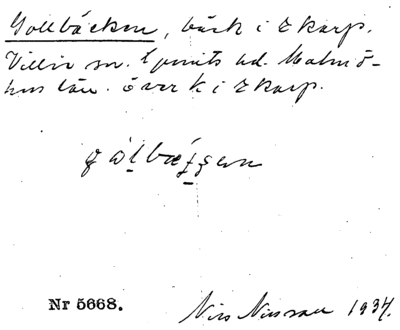 Gollbäcken, bäck i z karp.
Villie sn. Ljunits hd. Malmö-
hus län. över k i z karp.
Nr 5668.
Nils Nilsson 1934.